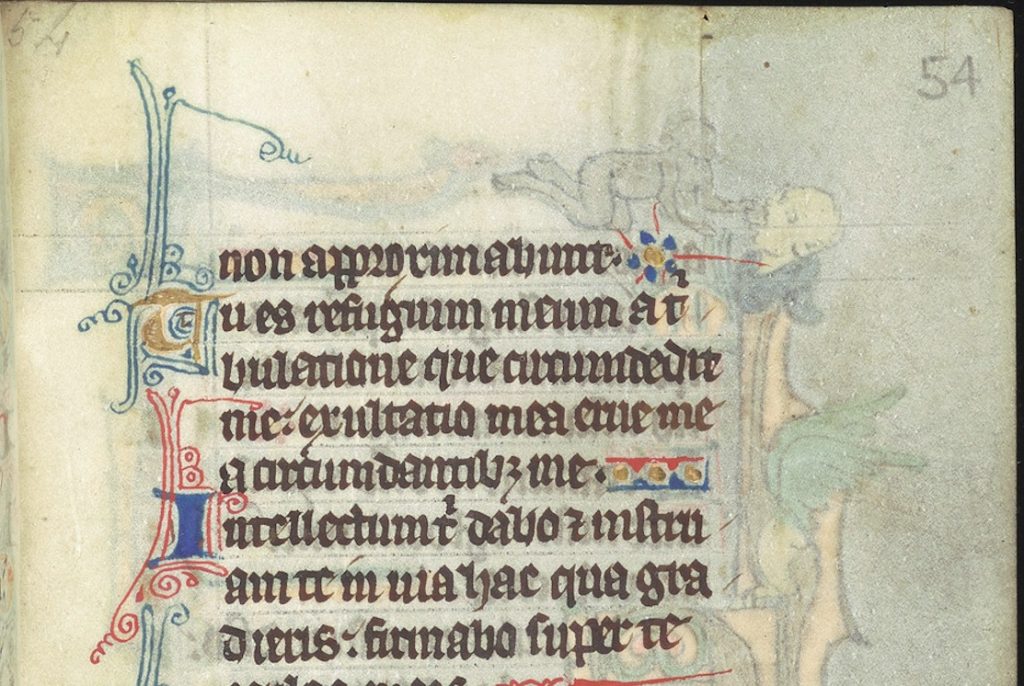 54
54
non approximabunt.
Tu es refugium meum a t͛
bulatione que circumdedit
me: exultatio mea erue me
a circūdantibꝫ me.
Intellectum t͛ dabo ⁊ instru
am te in uia hac qua gra
dieris: firmabo super te